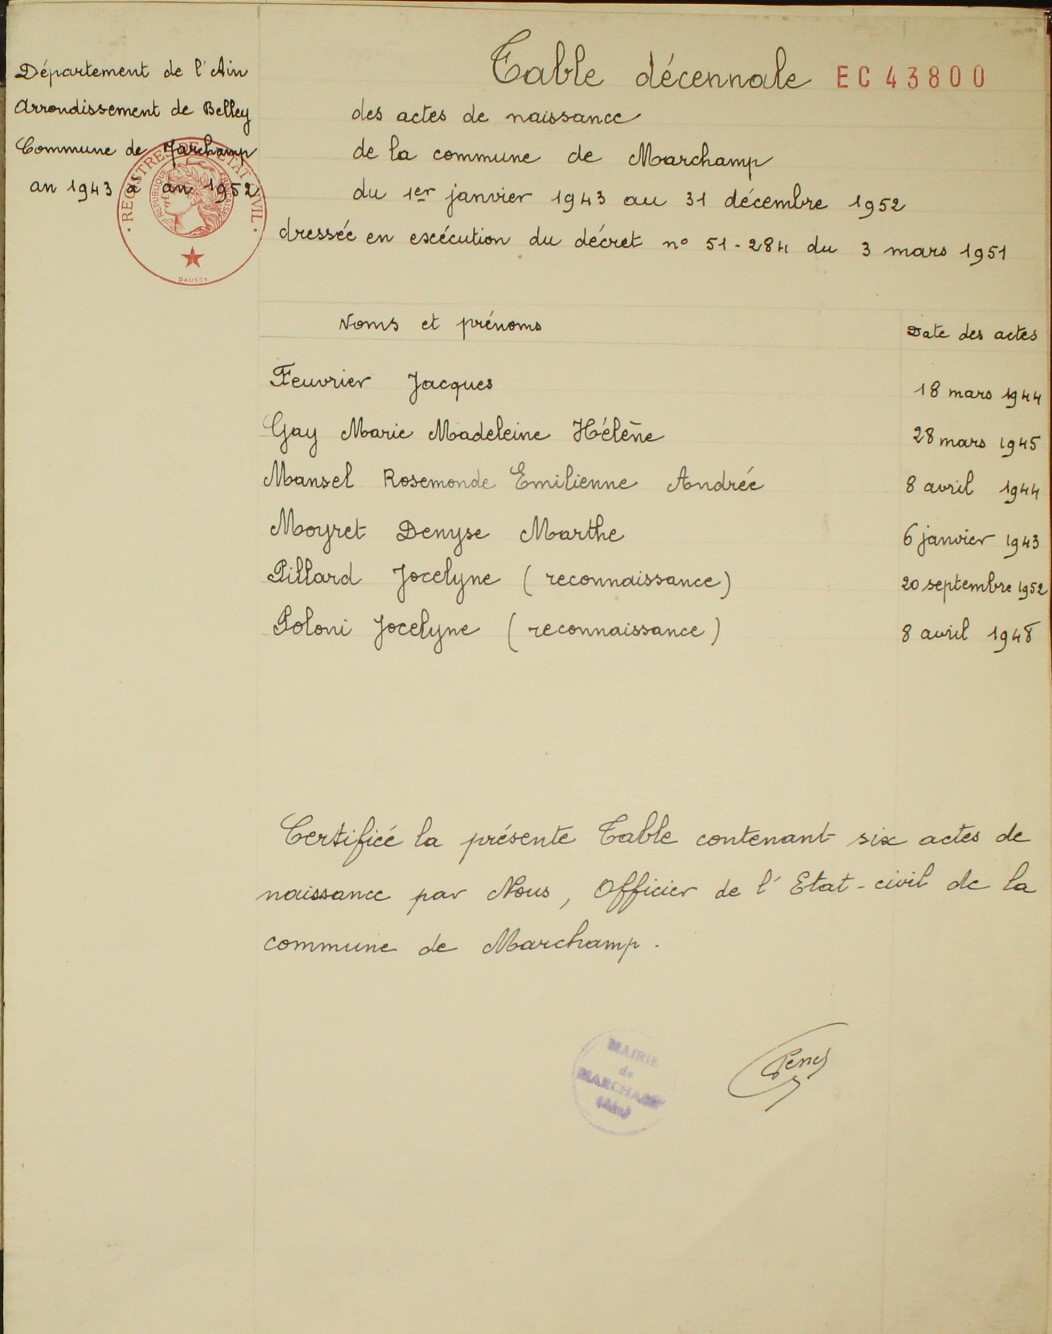 Département de l'Ain
Arrondissement de Belley
Commune de Marchamp
an 1943 à an 1952
REGISTRES DE L'ETAT CIVIL
REPUBLIQUE FRANÇAISE
Table décennale EC 43800
des actes de naissance
de la commune de Marchamp
du 1er janvier 1943 au 31 décembre 1952
dressée en excécution du décret n° 51-284 du 3 mars 1951
Noms et prénoms Date des actes
Feuvrier Jacques 18 mars 1944
Gay Marie Madeleine Hélène 28 mars 1945
Mansel Rosemonde Emilienne Andrée 8 avril 1944
Moyret Denyse Marthe 6 janvier 1943
Pillard Jocelyne (reconnaissance) 20 septembre 1952
Poloni Jocelyne (reconnaissance) 8 avril 1948
Certifiée la présente Table contenant six actes de
naissance par Nous, Officier de l'Etat-civil de la
commune de Marchamp.
MAIRIE
de
MARCHAMP
(Ain)